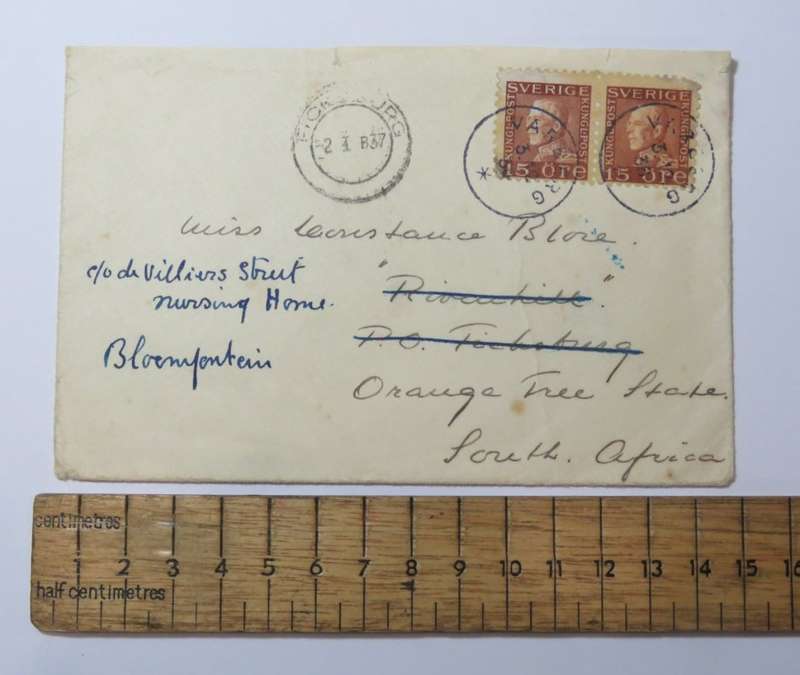 SVERIGE SVERIGE
KUNGL·POST KUNGL·POST
KUNGL·POST KUNGL·POST
15 ÖRE 15 ÖRE
Miss Constance Blore.
c/o de Villiers Street
Nursing Home.
Bloemfontein
"Rivenhill".
P.O. Ficksburg
Orange Free State.
South. Africa
centimetres
1 2 3 4 5 6 7 8 9 10 11 12 13 14 15 16
half centimetres